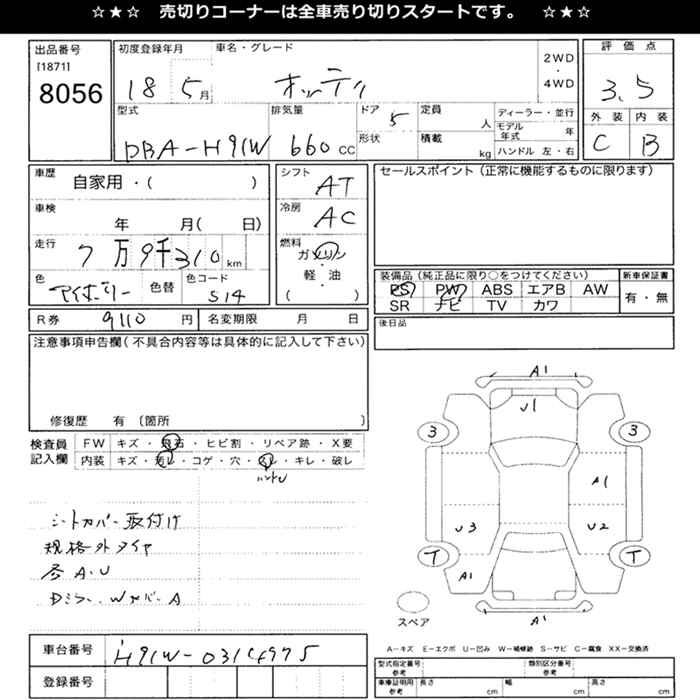 ☆★☆ 売切りコーナーは全車売り切りスタートです。 ☆★☆
出品番号
[1871]
8056
初度登録年月
18 5月
車名・グレード
オッティ
2WD
・
4WD
評価点
3.5
外装 内装
C B
型式
DBA-H91W
排気量
660 CC
ドア
5
形状
定員
人
積載
kg
ディーラー・並行
モデル年式 年
ハンドル 左・右
車歴
自家用・( )
車検
年 月( 日)
走行
7万9千310km
色
アイボリー
色替
色コード
S14
シフト
AT
冷房
AC
燃料
ガソリン
軽・油
( )
セールスポイント(正常に機能するものに限ります)
装備品(純正品に限り○をつけてください)
PS PW ABS エアB AW
SR ナビ TV カワ
新車保証書
有・無
R券 9110 円
名変期限 月 日
後日品
注意事項申告欄(不具合内容等は具体的に記入して下さい)
修復歴 有 [箇所
検査員
記入欄
FW キズ・飛石・ヒビ割・リペア跡・X要
内装 キズ・汚レ・コゲ・穴・スレ・キレ・破レ
ハンドル
シートカバー取付け
規格外タイヤ
各A.U
Dミラー、Wカバー A
A1
U1
3 3
A1
U3 U2
T T
A1
A1
スペア
A-キズ E-エクボ U-凹み W-補修跡 S-サビ C-腐食 XX-交換済
車台番号
H91W-0314975
登録番号
型式指定番号
参考
類別区分番号
参考
車庫証明用
参考
長さ cm
幅 cm
高さ cm